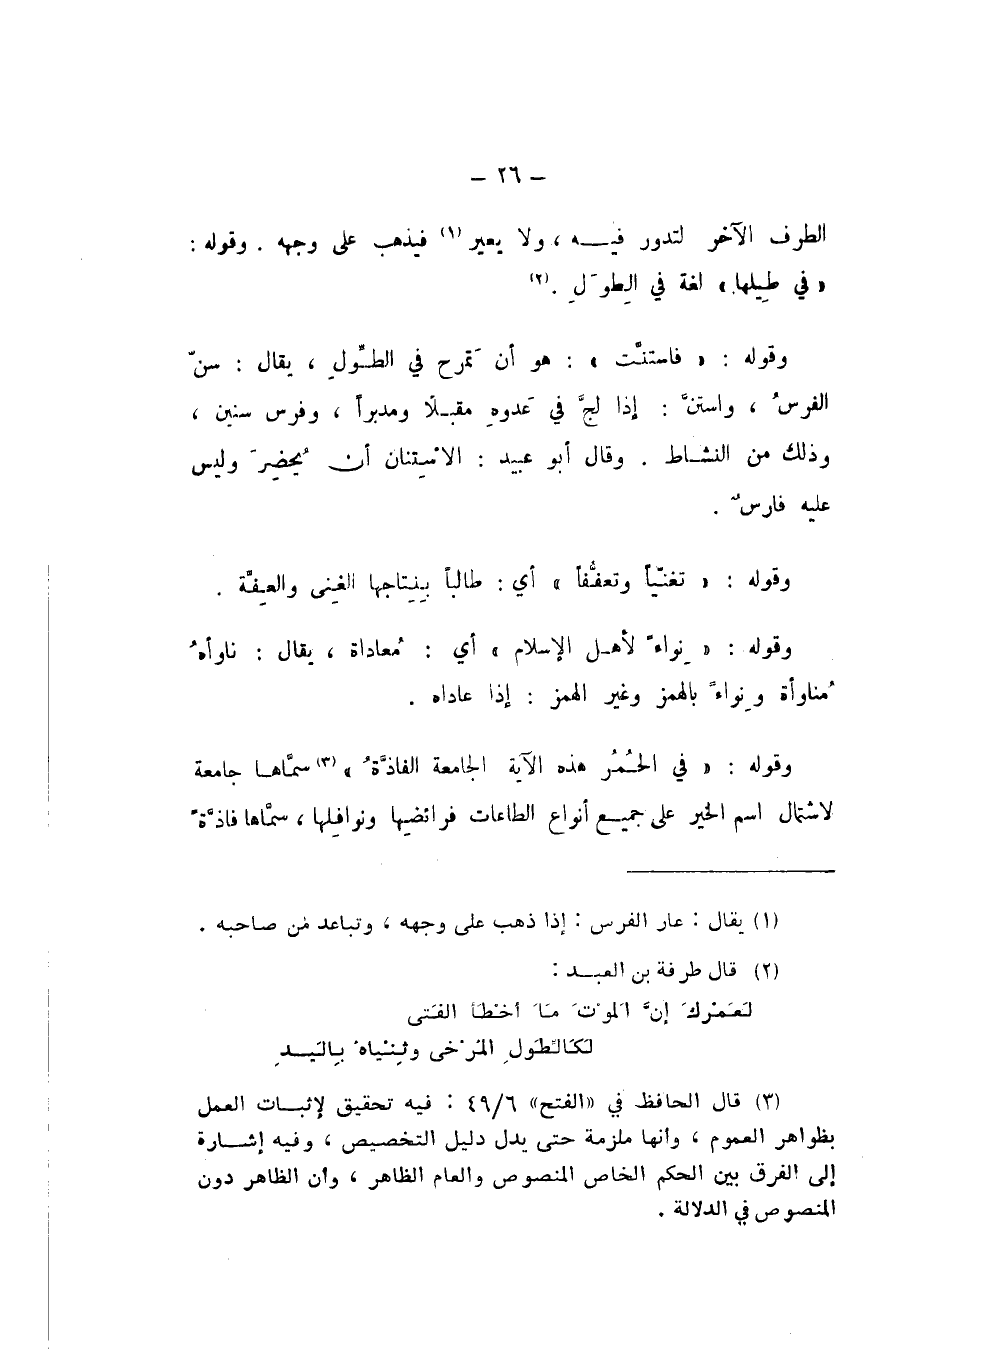 – ٢٦ –
الطرف الآخر لتدور فيـــه ، ولا يعير (١) فيذهب على وجهه . وقوله :
« في طِيلها » لغة في الطِوَلِ .(٢)
وقوله : « فاستنَّت » : هو أن تَمرح في الطِّوَلِ ، يقال : سنَّ
الفرسُ ، واستنَّ : إذا لجَّ في عَدوهِ مقبـلًا ومدبراً ، وفرس سنين ،
وذلك من النشـاط . وقال أبو عبيد : الاسْتِنان أن يُحضِرَ وليس
عليه فارسٌ .
وقوله : « تغنّياً وتعفُّفاً » أي : طالباً بنِتاجها الغِنى والعِفَّة .
وقوله : « نِواءً لأهـل الإسلام » أي : مُعاداة ، يقال : ناوأهُ
مُناوأة ونِواءً بالهمز وغير الهمز : إذا عاداه .
وقوله : « في الحُمُرُ هذه الآية الجامعة الفاذَّةُ » (٣) سمَّاهـا جامعة
لاشتمال اسم الخير على جميـع أنواع الطاعات فرائضِها ونوافلِها ، سمَّاها فاذَّةً
(١) يقال : عار الفرس : إذا ذهب على وجهه ، وتباعد عن صاحبه .
(٢) قال طرفة بن العبـــد :
لَعَمْرُكَ إنَّ الموْتَ مَا أخْطَأ الفَتى
لكالطِّوَلِ المُرْخى وثِنْياهُ بِاليَـــدِ
(٣) قال الحافظ في «الفتح» ٤٩/٦ : فيه تحقيق لإثبـات العمل
بظواهر العموم ، وأنها ملزمة حتى يدل دليل التخصيص ، وفيه إشـــارة
إلى الفرق بين الحكم الخاص المنصوص والعام الظاهر ، وأن الظاهر دون
المنصوص في الدلالة .